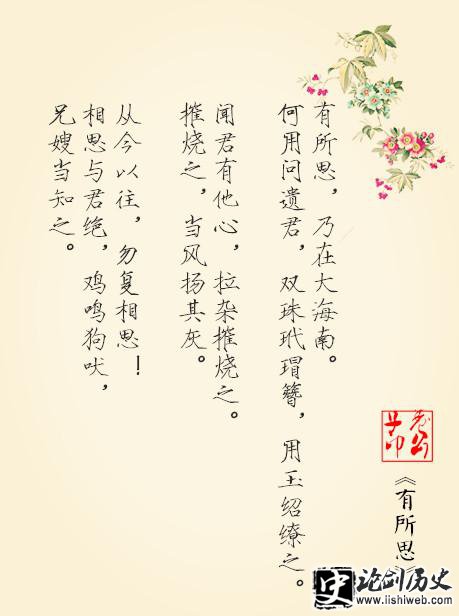 《有所思》
有所思，乃在大海南。
何用问遗君，双珠玳瑁簪，用玉绍缭之。
闻君有他心，拉杂摧烧之。
摧烧之，当风扬其灰。
从今以往，勿复相思！
相思与君绝，鸡鸣狗吠，
兄嫂当知之。
史 论剑历史
www.lishiweb.com